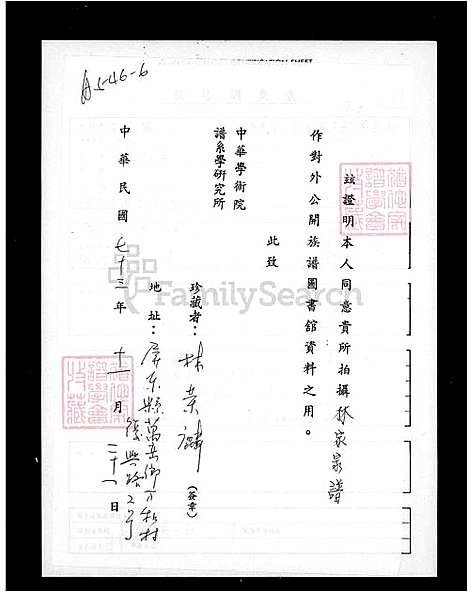 A5-46-6
茲證明本人同意貴所拍攝林家家譜
作對外公開族譜圖書館資料之用。
此致
中華學術院
譜系學研究所
珍藏者：林榮(簽章)
地址：屏東縣萬鄉村
興路2号
中華民國七十三年十一月二十一日
FamilySearch